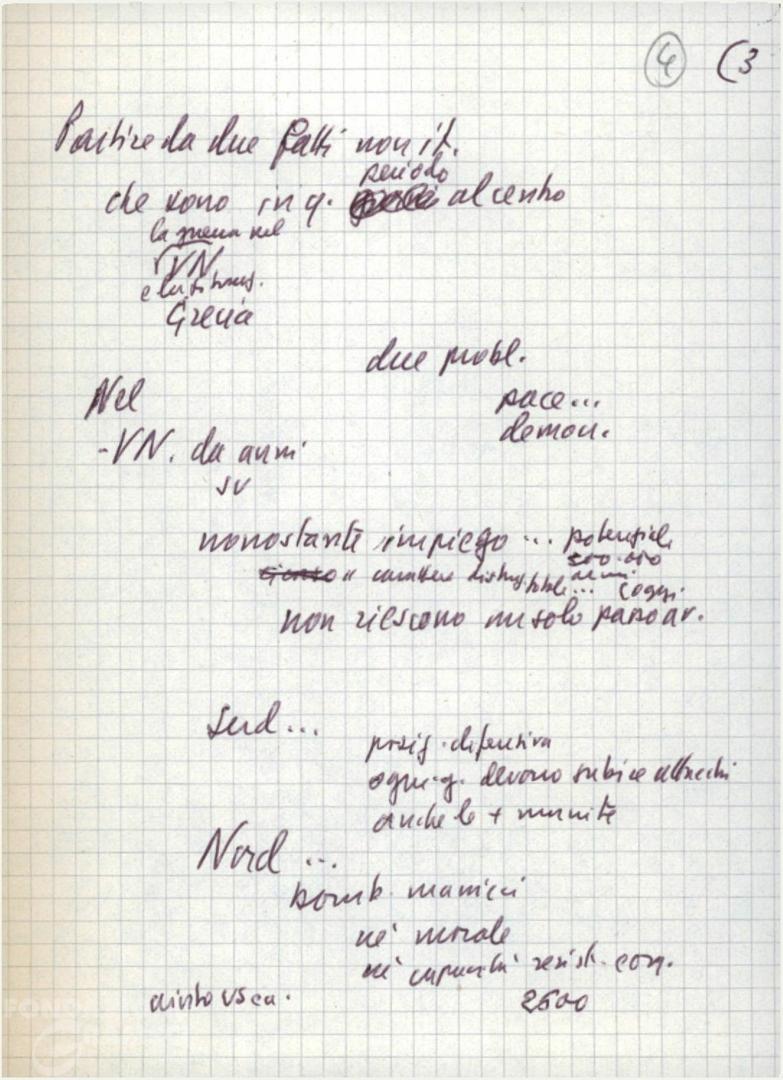 4 (3
Partire da due fatti non it.
periodo
che sono in q. al centro
la guerra nel
VN
e la situaz.
Grecia
due probl.
Nel
pace...
democr.
-VN. da anni
SV
nonostante impiego ... potenziale
500.000
carattere distrug. totale... (oggi
non riescono non solo
Sud...
posiz. difensiva
ogni g. devono subire attacchi
anche le + munite
Nord ...
bomb. massicci
né morale
né capacità resist. con.
aiuto
2600